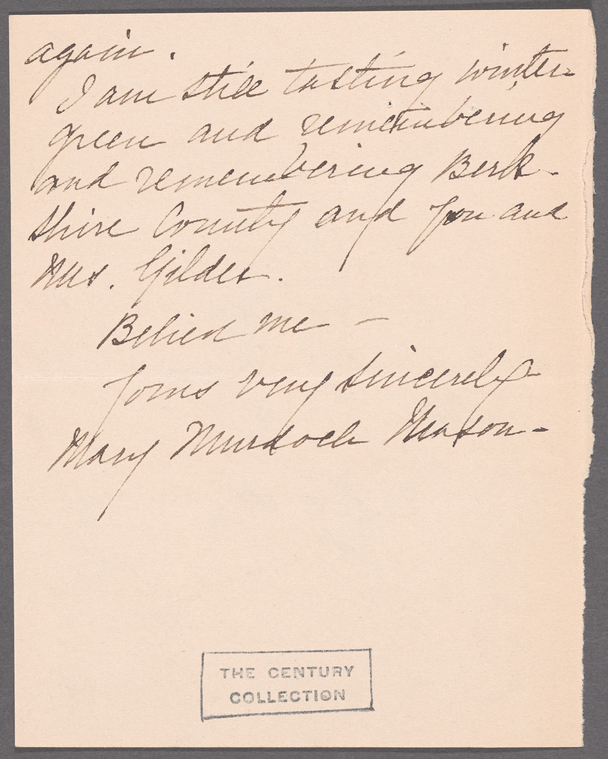 again.
I am still tasting winter
green and remembering
and remembering Berk-
shire County and you and
Mrs. Gilder.
Believe me —
Yours very sincerely
Mary Murdoch Mason—
THE CENTURY
COLLECTION